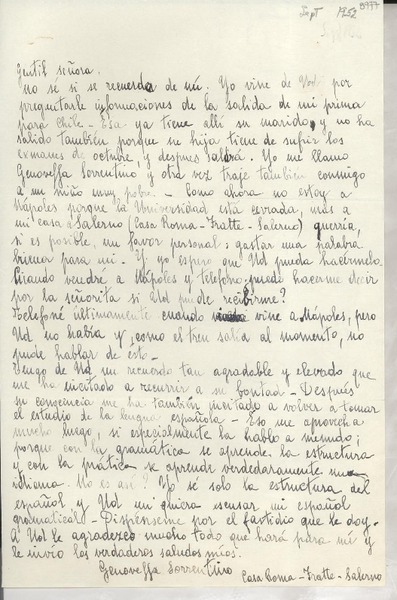 Sept 1952 8977
Gentil señora.
no sé si se recuerda de mí. Yo vine de Vd. por
preguntarle informaciones de la salida de mi prima
para Chile - Esa ya tiene allí su marido, y no ha
salido también porque su hija tiene de sufrir los
exmanes de octure, y despues saldrá. Yo me llamo
Genoveffa Sorrentino y otra vez traje también conmigo
a un niño muy pobre. - Como ahora no estoy a
Nápoles porque la Universidad está cerrada, más a
mi casa a Salerno (Casa Roma - Fratte - Salerno) querría,
si es posible, un favor personal: gastar una palabra
buena para mi. Y yo espero que Ud pueda hacérmelo.
Cuando vendré a Nápoles y telefono, puede hacerme decir
por la señorita si Ud puede recibirme?
Telefoné últimamente cuando vine a Nápoles, pero
Ud no había y, como el tren salid al momento, no
pude hablar de esto.
Tengo de Ud un recuerdo tan agradable y elevado que
me ha incitado a recurrir a su bontad - Después
su conocencia me ha también invitado a volver a tomar
el estudio de la lengua española - Eso me aprovecha
mucho luego, si especialmente la hablo a menudo;
porque con la gramática se aprende la estructura
y con la práctica se aprende verdaderamente un
idioma. No es así? Yo sé solo la estructura del
español y Ud mi quiera scusar mi español
gramatical - Dispénseme por el fastidio que le doy -
A Ud le agradezco mucho todo que hará para mí y
le invio los verdaderos saludos míos.
Genoveffa Sorrentino
Casa Roma - Fratte - Salerno